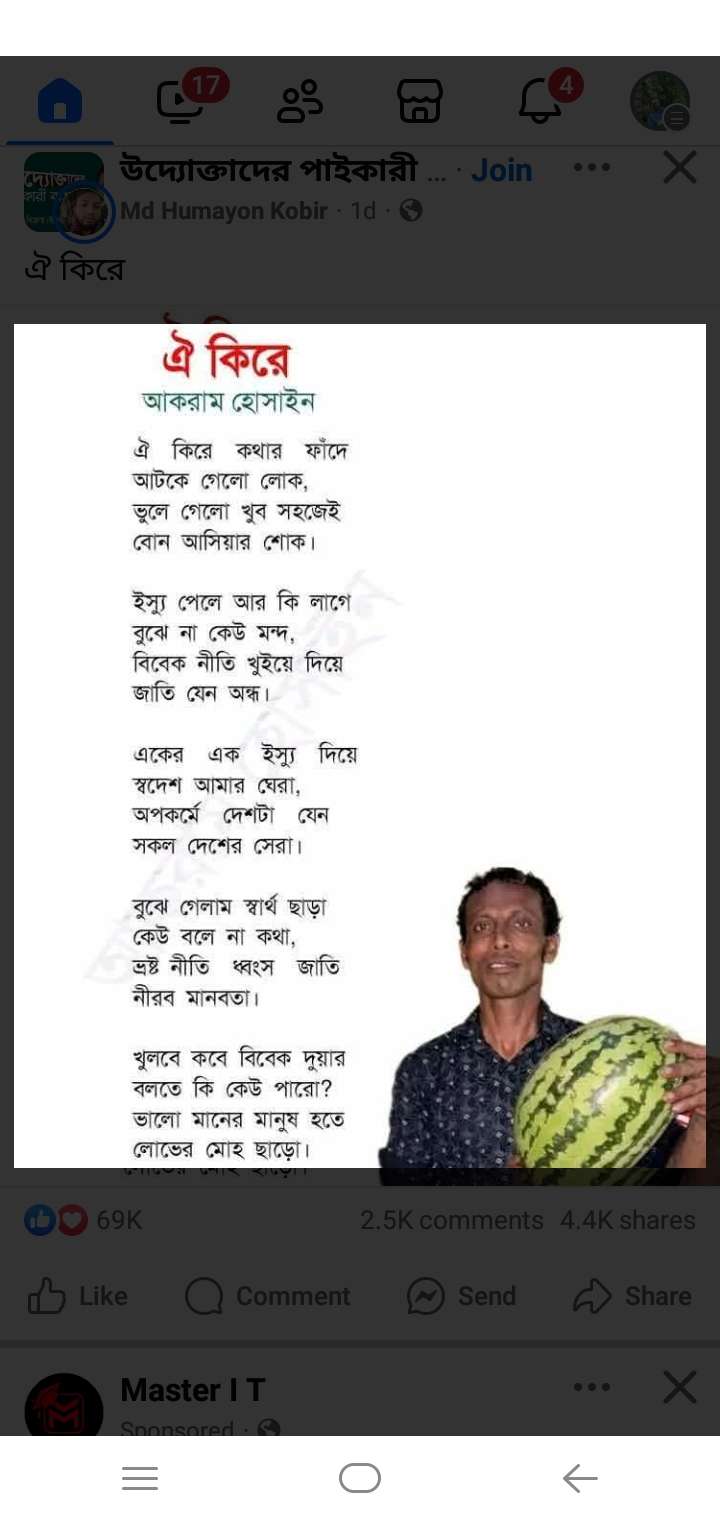 17
4
উদ্যোক্তাদের পাইকারী ... · Join
Md Humayon Kobir · 1d ·
ঐ কিরে
ঐ কিরে
আকরাম হোসাইন
ঐ কিরে কথার ফাঁদে
আটকে গেলো লোক,
ভুলে গেলো খুব সহজেই
বোন আসিয়ার শোক।
ইস্যু পেলে আর কি লাগে
বুঝে না কেউ মন্দ,
বিবেক নীতি খুইয়ে দিয়ে
জাতি যেন অন্ধ।
একের এক ইস্যু দিয়ে
স্বদেশ আমার ঘেরা,
অপকর্মে দেশটা যেন
সকল দেশের সেরা।
বুঝে গেলাম স্বার্থ ছাড়া
কেউ বলে না কথা,
ভ্রষ্ট নীতি ধ্বংস জাতি
নীরব মানবতা।
খুলবে কবে বিবেক দুয়ার
বলতে কি কেউ পারো?
ভালো মানের মানুষ হতে
লোভের মোহ ছাড়ো।
69K 2.5K comments 4.4K shares
Like Comment Send Share
Master I T
Sponsored ·